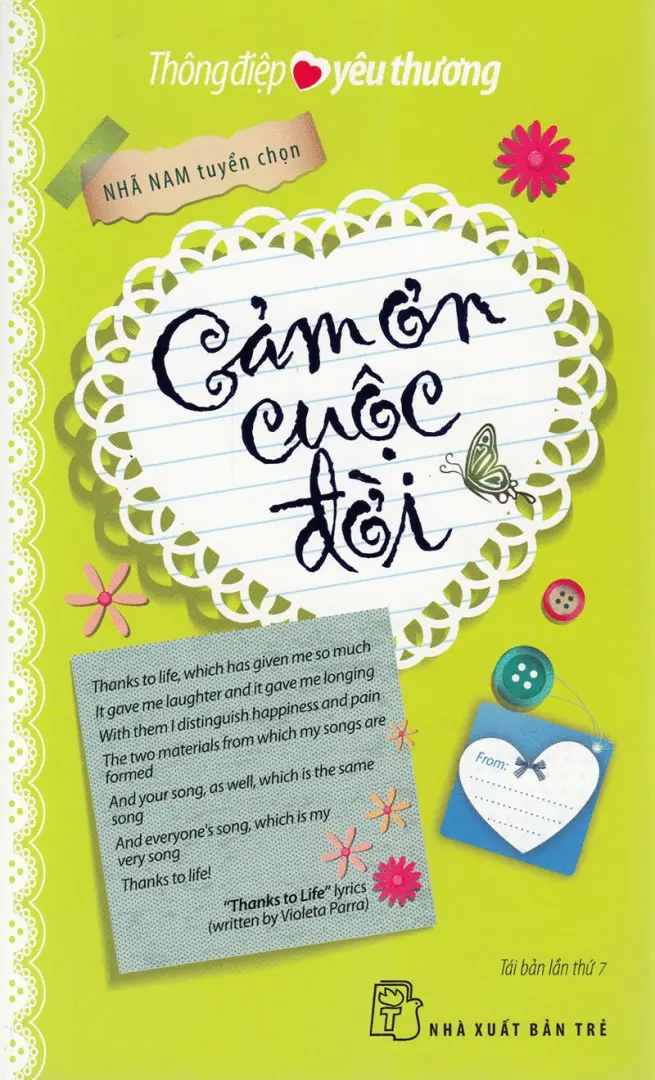 Thông điệp yêu thương
NHÃ NAM tuyển chọn
Cảm ơn
cuộc
đời
Thanks to life, which has given me so much
It gave me laughter and it gave me longing
With them I distinguish happiness and pain
The two materials from which my songs are
formed
And your song, as well, which is the same
song
And everyone's song, which is my
very song
Thanks to life!
"Thanks to Life" lyrics
(written by Violeta Parra)
From:
Tái bản lần thứ 7
T
NHÀ XUẤT BẢN TRẺ